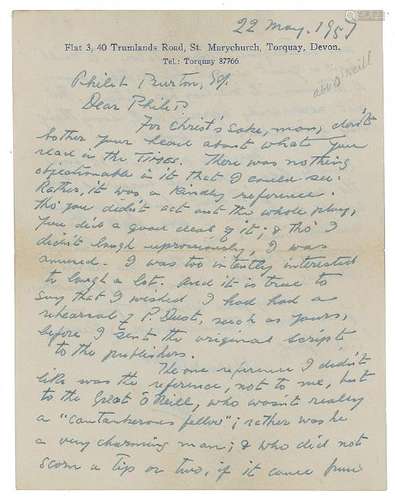 22 May. 1957
Flat 3, 40 Trumlands Road, St. Marychurch, Torquay, Devon.
Tel.: Torquay 87766
abt O'Neill
Philip Burton, Esq.
Dear Philip
For Christ's sake, man, don't
bother your head about what you
read in the TIMES. There was nothing
objectionable in it that I could see.
Rather, it was a kindly reference.
Tho' you didn't act out the whole play,
you did a good deal of it; & tho' I
didn't laugh uproariously, I was
amused. I was too intently interested
to laugh a lot. And it is true to
say that I wished I had had a
rehearsal of P. Dust, such as yours,
before I sent the original script
to the publishers.
The one reference I didn't
like was the reference, not to me, but
to the Great O'Neill, who wasn't really
a "cantankerous fellow"; rather was he
a very charming man; & who did not
scorn a tip or two, if it came from